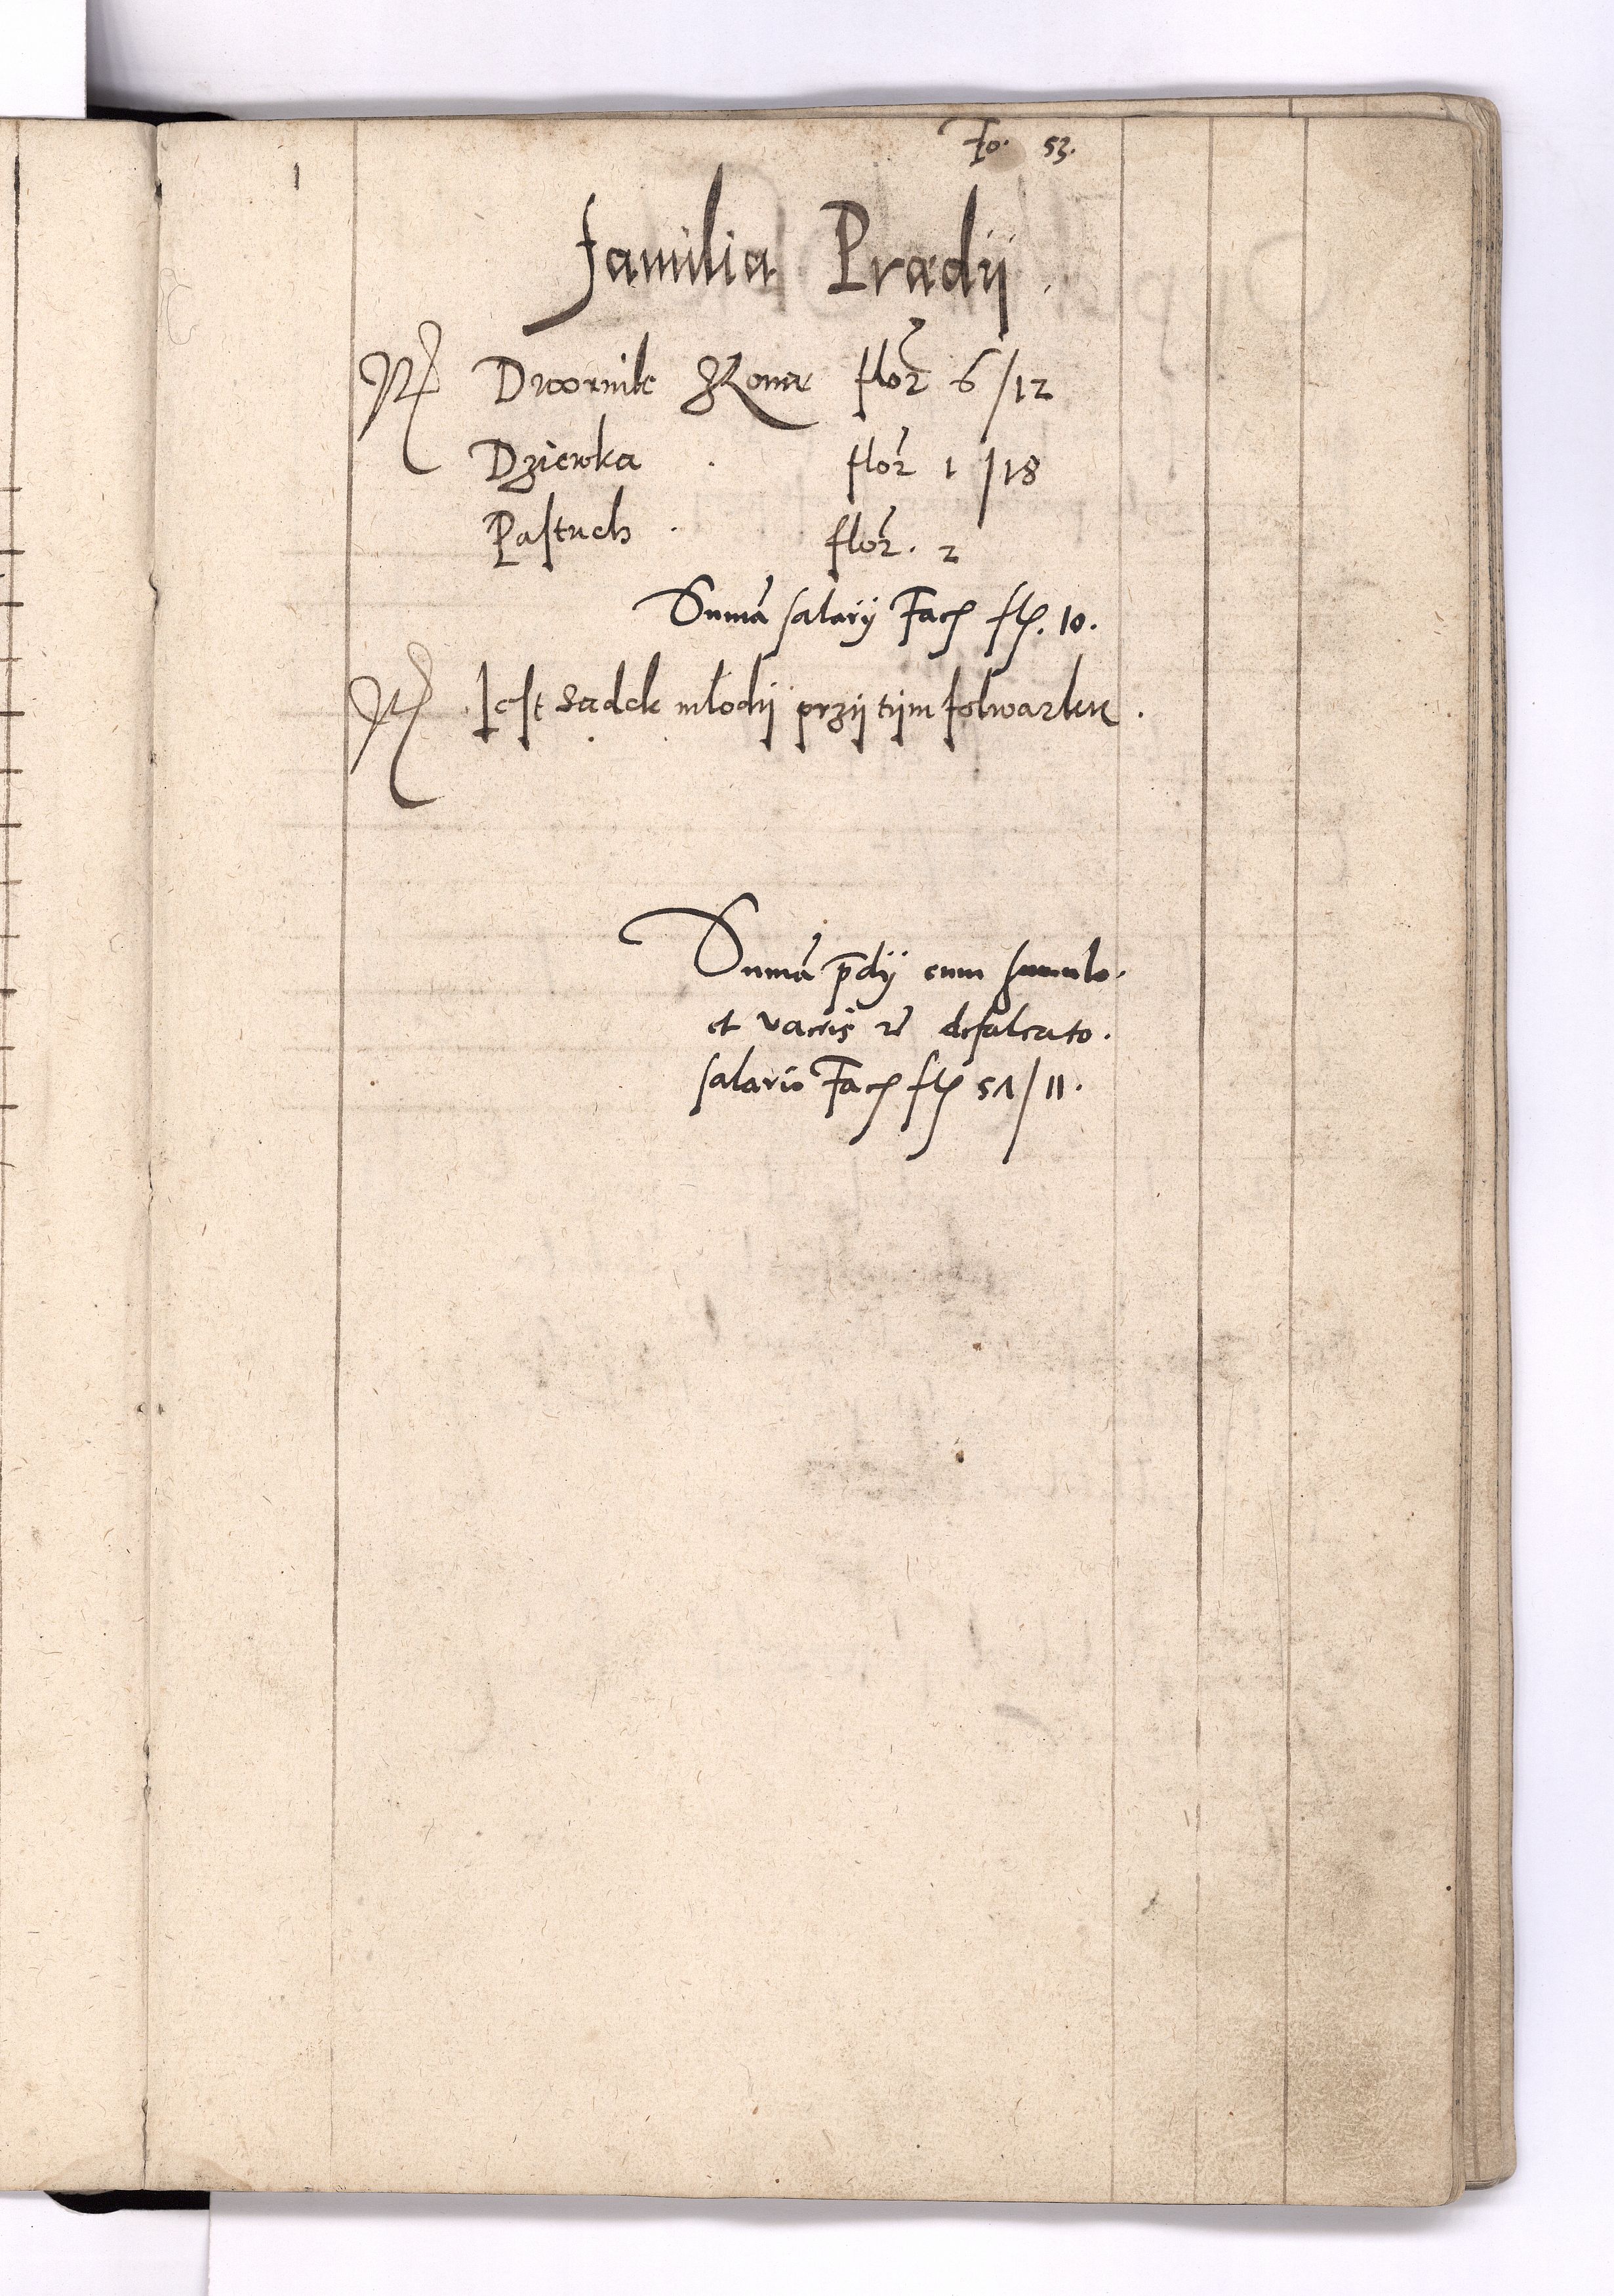 Fo. 53.
familia Prædij.
Dwornik zzoną flor 6/12
Dziewka . flor 1/18
Pastuch . flor. 2
Suma salarij Fae fl. 10.
Jest sadek mlodij przij tijm folwarku.
Suma pdij cum
et vaccis defalcato.
salario Fae fl 51/11.